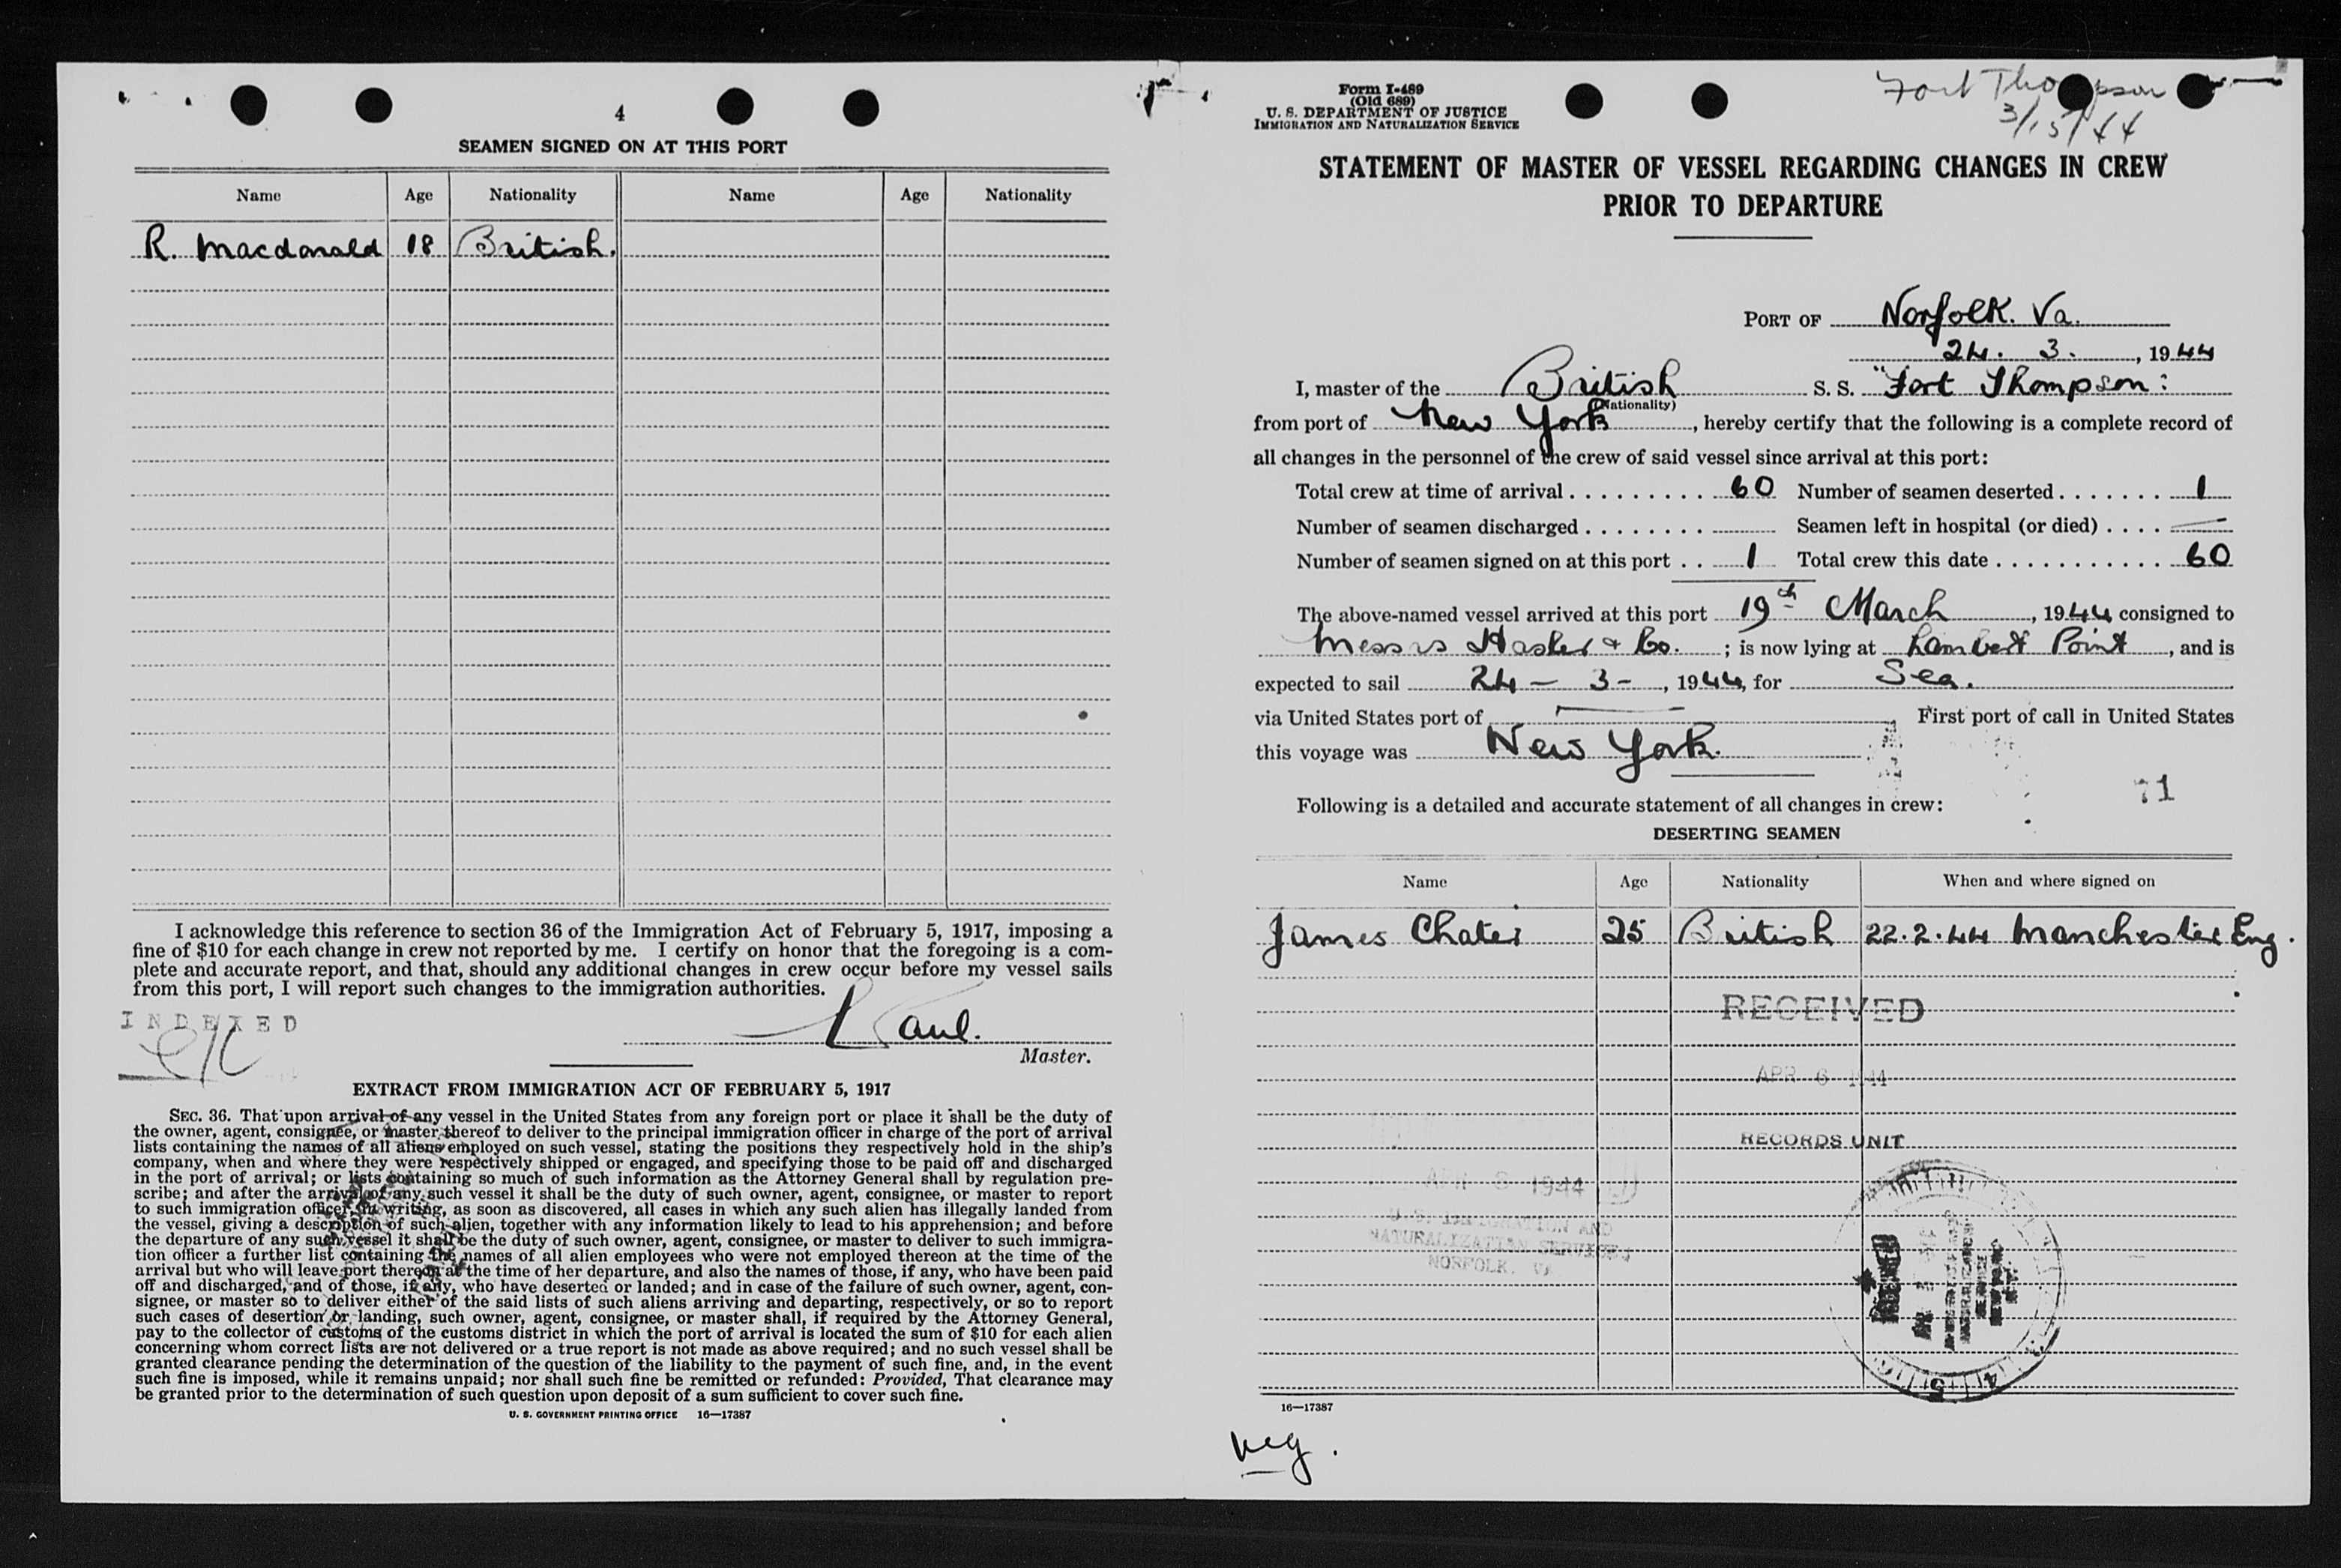 4
SEAMEN SIGNED ON AT THIS PORT
Name Age Nationality Name Age Nationality
R. Macdonald 18 British.
I acknowledge this reference to section 36 of the Immigration Act of February 5, 1917, imposing a
fine of $10 for each change in crew not reported by me. I certify on honor that the foregoing is a com-
plete and accurate report, and that, should any additional changes in crew occur before my vessel sails
from this port, I will report such changes to the immigration authorities.
INDEXED
Paul.
Master.
EXTRACT FROM IMMIGRATION ACT OF FEBRUARY 5, 1917
SEC. 36. That upon arrival of any vessel in the United States from any foreign port or place it shall be the duty of
the owner, agent, consignee, or master thereof to deliver to the principal immigration officer in charge of the port of arrival
lists containing the names of all aliens employed on such vessel, stating the positions they respectively hold in the ship's
company, when and where they were respectively shipped or engaged, and specifying those to be paid off and discharged
in the port of arrival; or lists containing so much of such information as the Attorney General shall by regulation pre-
scribe; and after the arrival of any such vessel it shall be the duty of such owner, agent, consignee, or master to report
to such immigration officer, in writing, as soon as discovered, all cases in which any such alien has illegally landed from
the vessel, giving a description of such alien, together with any information likely to lead to his apprehension; and before
the departure of any such vessel it shall be the duty of such owner, agent, consignee, or master to deliver to such immigra-
tion officer a further list containing the names of all alien employees who were not employed thereon at the time of the
arrival but who will leave port thereon at the time of her departure, and also the names of those, if any, who have been paid
off and discharged, and of those, if any, who have deserted or landed; and in case of the failure of such owner, agent, con-
signee, or master so to deliver either of the said lists of such aliens arriving and departing, respectively, or so to report
such cases of desertion or landing, such owner, agent, consignee, or master shall, if required by the Attorney General,
pay to the collector of customs of the customs district in which the port of arrival is located the sum of $10 for each alien
concerning whom correct lists are not delivered or a true report is not made as above required; and no such vessel shall be
granted clearance pending the determination of the question of the liability to the payment of such fine, and, in the event
such fine is imposed, while it remains unpaid; nor shall such fine be remitted or refunded: Provided, That clearance may
be granted prior to the determination of such question upon deposit of a sum sufficient to cover such fine.
U. S. GOVERNMENT PRINTING OFFICE 16—17387
Form I-489
(Old 689)
U. S. DEPARTMENT OF JUSTICE
IMMIGRATION AND NATURALIZATION SERVICE
Fort Thompson
3/15/44
STATEMENT OF MASTER OF VESSEL REGARDING CHANGES IN CREW
PRIOR TO DEPARTURE
PORT OF Norfolk. Va.
24. 3. , 1944
I, master of the British S. S. "Fort Thompson:
(Nationality)
from port of New York, hereby certify that the following is a complete record of
all changes in the personnel of the crew of said vessel since arrival at this port:
Total crew at time of arrival . . . . . . . . . 60 Number of seamen deserted . . . . . . . 1
Number of seamen discharged . . . . . . . . Seamen left in hospital (or died) . . . . —
Number of seamen signed on at this port . . 1 Total crew this date . . . . . . . . . . . . 60
The above-named vessel arrived at this port 19th March, 1944 consigned to
Messrs Hasler & Co. ; is now lying at Lambert Point, and is
expected to sail 24 — 3 —, 1944, for Sea.
via United States port of —, First port of call in United States
this voyage was New York.
71
Following is a detailed and accurate statement of all changes in crew:
DESERTING SEAMEN
Name Age Nationality When and where signed on
James Chater 25 British 22.2.44 Manchester Eng.
RECEIVED
APR 6 1944
RECORDS UNIT
APR 6 1944
U. S. IMMIGRATION AND
NATURALIZATION SERVICE
NORFOLK, VA
16—17387